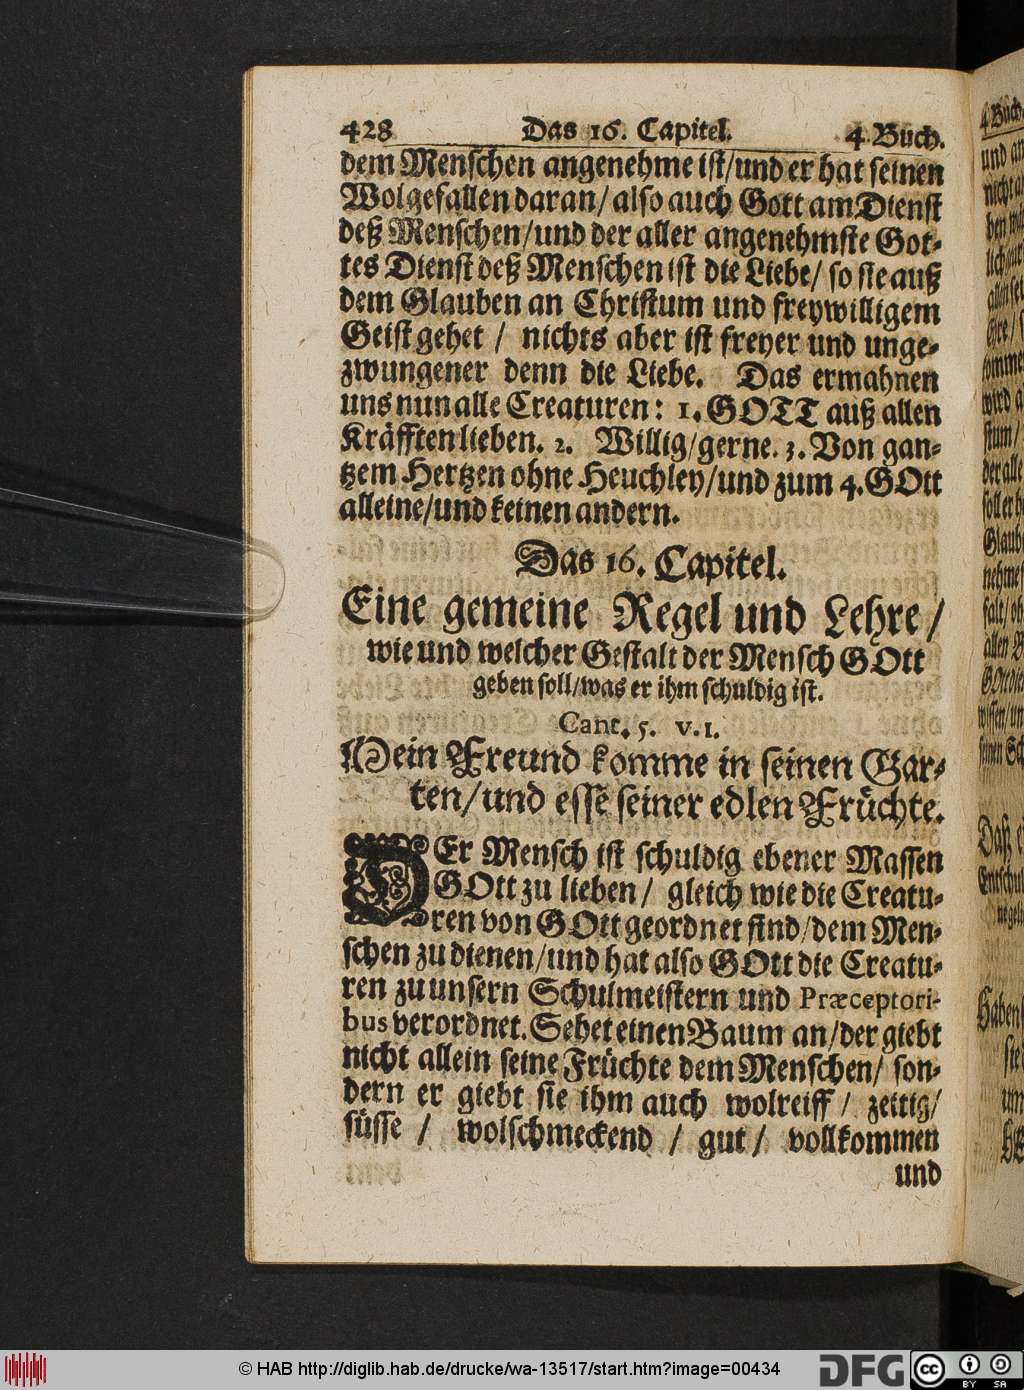 428 Das 16. Capitel. 4. Buch.
dem Menschen angenehme ist/und er hat seinen
Wolgefallen daran/ also auch Gott am Dienst
deß Menschen/und der aller angenehmste Got-
tes Dienst deß Menschen ist die Liebe/ so sie auß
dem Glauben an Christum und freywilligem
Geist gehet / nichts aber ist freyer und unge-
zwungener denn die Liebe. Das ermahnen
uns nun alle Creaturen: 1. GOTT auß allen
Kräfften lieben. 2. Willig/gerne. 3. Von gan-
tzem Hertzen ohne Heuchley/und zum 4. GOtt
alleine/und keinen andern.
Das 16. Capitel.
Eine gemeine Regel und Lehre /
wie und welcher Gestalt der Mensch GOtt
geben soll/was er ihm schuldig ist.
Cant. 5. v. 1.
Mein Freund komme in seinen Gar-
ten/und esse seiner edlen Früchte.
DEr Mensch ist schuldig ebener Massen
GOtt zu lieben / gleich wie die Creatu-
ren von GOtt geordnet sind/dem Men-
schen zu dienen/und hat also GOtt die Creatu-
ren zu unsern Schulmeistern und Præceptori-
bus verordnet. Sehet einen Baum an/der giebt
nicht allein seine Früchte dem Menschen/ son-
dern er giebt sie ihm auch wolreiff / zeitig/
süsse / wolschmeckend / gut / vollkommen
und
4 Buch
und
© HAB http://diglib.hab.de/drucke/wa-13517/start.htm?image=00434
DFG
cc BY SA